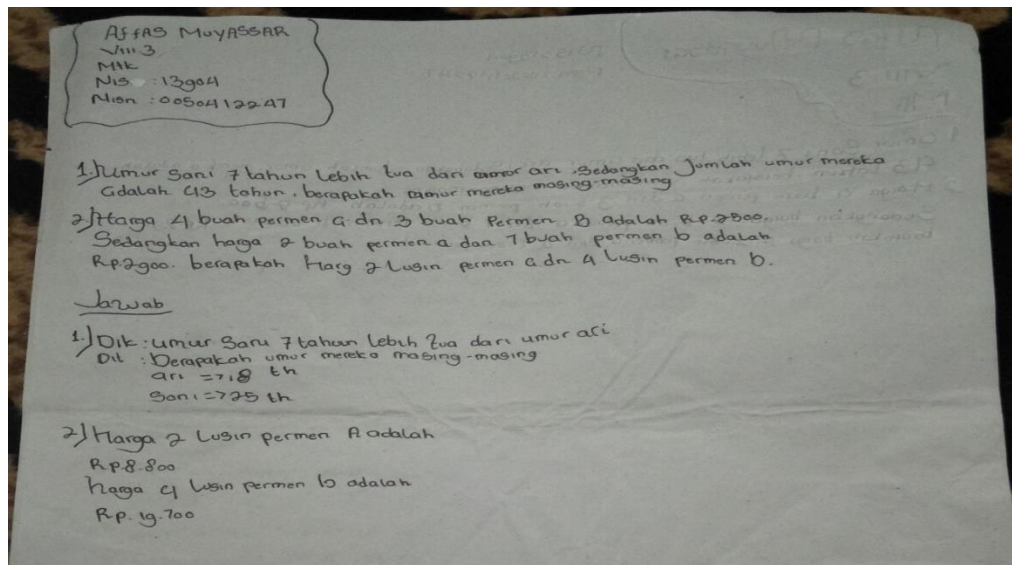 AffAS MUYASSAR
VIII 3
Mtk
Nis : 13904
Nisn : 0050412247
1.) Umur Sani 7 tahun lebih tua dari umur ari , Sedangkan Jumlah umur mereka
adalah 43 tahun . berapakah umur mereka masing-masing
2) Harga 4 buah permen a dn 3 buah Permen B adalah Rp.2500.
Sedangkan harga 2 buah permen a dan 7 buah permen b adalah
Rp.2900. berapakah Harg 2 Lusin permen a dn 4 Lusin permen b.
Jawab
1.) Dik : umur Sani 7 tahun lebih tua dari umur ari
Dit : berapakah umur mereka masing-masing
ari => 18 th
Sani => 25 th
2) Harga 2 Lusin permen A adalah
Rp.8.800
harga 4 lusin permen b adalah
Rp. 19.700